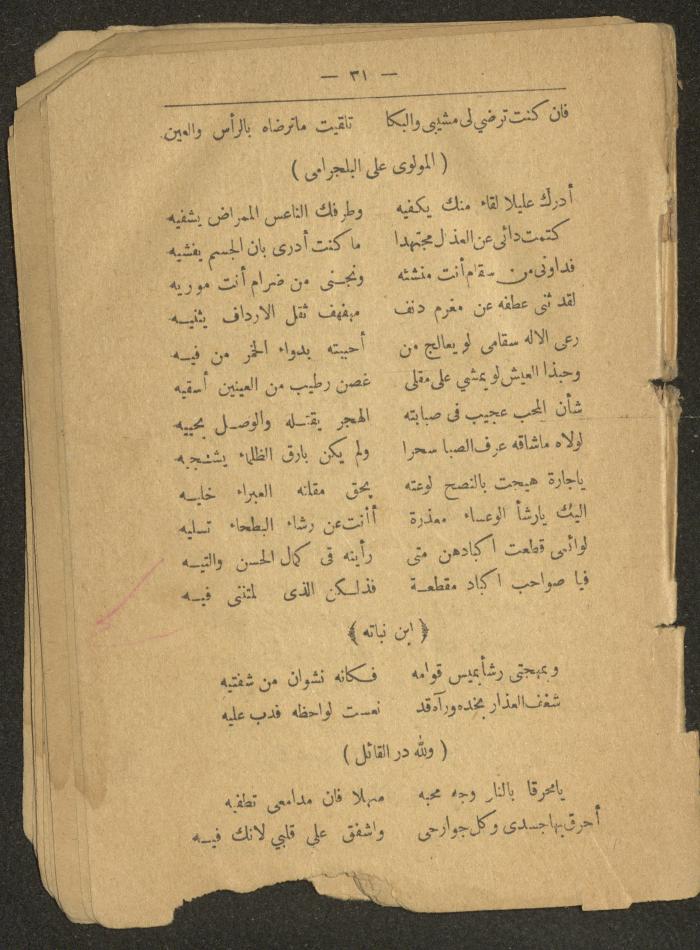 — ٣١ —
فان كنت ترضي لى مشيبى والبكا تلقيت ماترضاه بالرأس والعين
( المولوى على البلجرامى )
أدرك عليلا لقاء منك يكفيه وطرفك الناعس الممراض يشفيه
كتمت دائى عن العذال مجتهدا ما كنت أدرى بان الجسم يفشيه
فداونى من سقام أنت منشئه ونجنى من ضرام أنت موريه
لقد ثنى عطفه عن مغرم دنف مهفهف ثقل الارداف يثنيه
رعى الاله سقامى لو يعالج من أحببته بدواء الخمر من فيه
وحبذا العيش لو يمشي على مقلى غصن رطيب من العينين أسقيه
شأن المحب عجيب فى صبابته الهجر يقتله والوصل يحييه
لولاه ماشاقه عرف الصبا سحرا ولم يكن بارق الظلماء يشجيه
ياجارة هيجت بالنصح لوعته بحق مقلته العبراء خليه
اليك يارشأ الوعساء معذرة أأنت عن رشاء البطحاء تسليه
لوائمى قطعت اكبادهن متى رأينه فى كمال الحسن والتيه
فيا صواحب اكباد مقطعة فذلكن الذى لمتننى فيه
﴿ ابن نباته ﴾
وبمهجتى رشأ يميس قوامه فكانه نشوان من شفتيه
شغف العذار بخده ورآه قد نعست لواحظه فدب عليه
( ولله در القائل )
يامحرقا بالنار وجه محبه مهلا فان مدامعى تطفيه
أحرق بها جسدى وكل جوارحى واشفق على قلبي لانك فيه